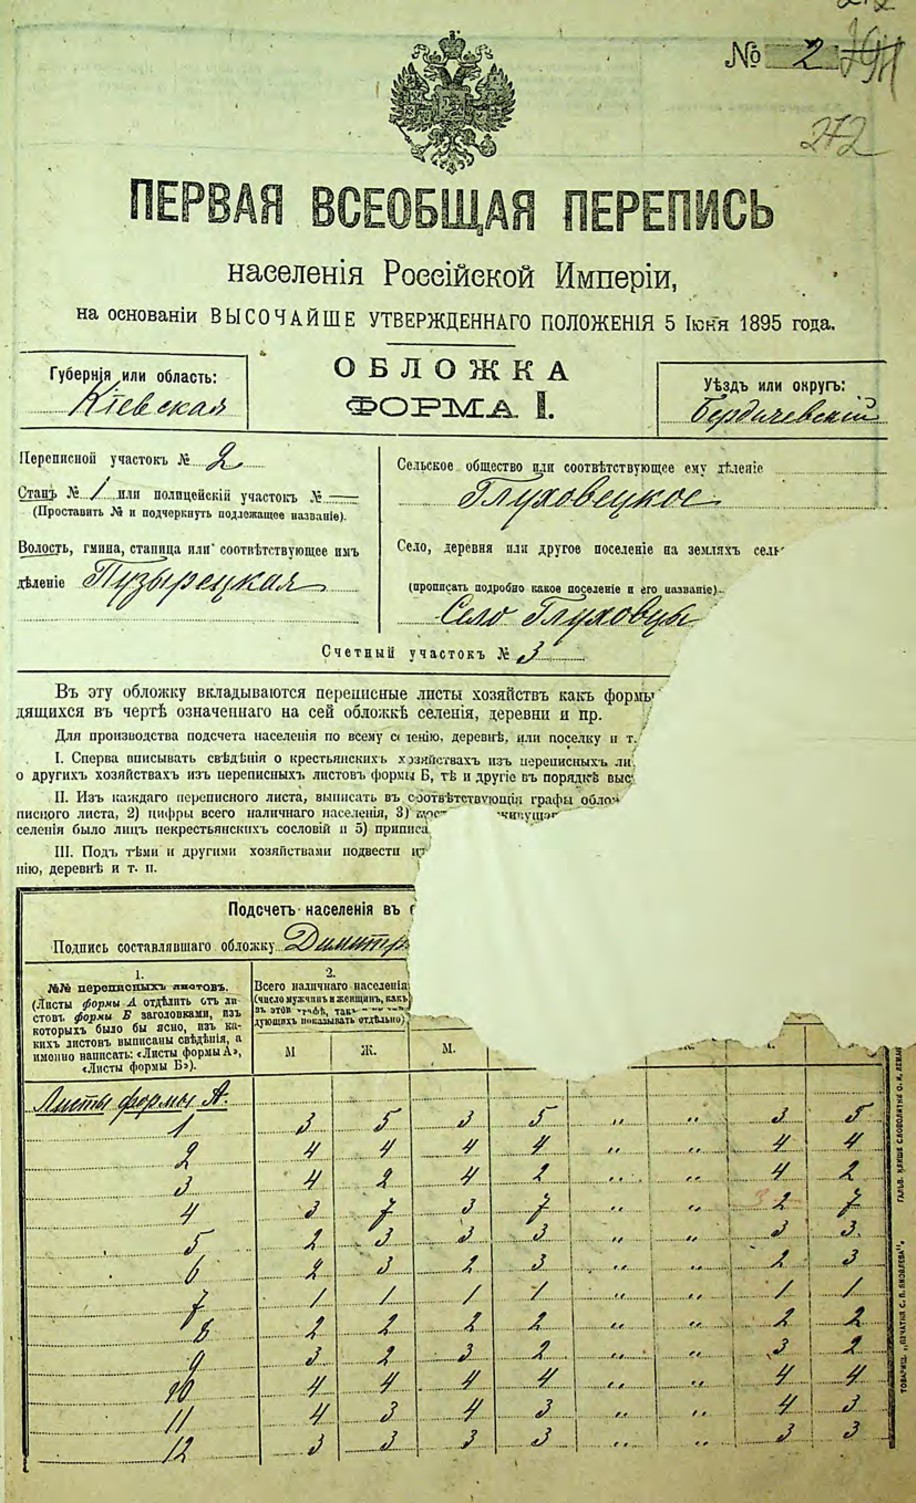 № 2
272
ПЕРВАЯ ВСЕОБЩАЯ ПЕРЕПИСЬ
населенія Россійской Имперіи,
на основаніи ВЫСОЧАЙШЕ УТВЕРЖДЕННАГО ПОЛОЖЕНІЯ 5 Іюня 1895 года.
ОБЛОЖКА
ФОРМА I.
Губернія или область:
Кіевская
Уѣздъ или округъ:
Бердичевскій
Переписной участокъ № 2
Станъ № 1 или полицейскій участокъ № —
(Проставить № и подчеркнуть подлежащее названіе).
Волость, гмина, станица или соотвѣтствующее имъ
дѣленіе Пузырецкая
Сельское общество или соотвѣтствующее ему дѣленіе
Глуховецкое
Село, деревня или другое поселеніе на земляхъ сель
(прописать подробно какое поселеніе и его названіе)
Село Глуховцы
Счетный участокъ № 3
Въ эту обложку вкладываются переписные листы хозяйствъ какъ формы
дящихся въ чертѣ означеннаго на сей обложкѣ селенія, деревни и пр.
Для производства подсчета населенія по всему селенію, деревнѣ, или поселку и т.
I. Сперва вписывать свѣдѣнія о крестьянскихъ хозяйствахъ изъ переписныхъ ли
о другихъ хозяйствахъ изъ переписныхъ листовъ формы Б, тѣ и другіе въ порядкѣ выс
II. Изъ каждаго переписного листа, выписать въ соотвѣтствующія графы облож
писного листа, 2) цифры всего наличнаго населенія, 3)
селенія было лицъ некрестьянскихъ сословій и 5) приписа
III. Подъ тѣми и другими хозяйствами подвести
нію, деревнѣ и т. п.
Подсчетъ населенія въ с
Подпись составлявшаго обложку Димитр
1.
№№ переписныхъ листовъ.
(Листы формы А отдѣлить отъ ли-
стовъ формы Б заголовками, изъ
которыхъ было бы ясно, изъ ка-
кихъ листовъ выписаны свѣдѣнія, а
именно написать: «Листы формы А»,
«Листы формы Б»).
2.
Всего наличнаго населенія
(число мужчинъ и женщинъ, какъ
въ этой графѣ, такъ
дующихъ показывать отдѣльно)
М Ж. М.
Листы формы А.
1 3 5 3 5 " " 3 5
2 4 4 4 4 " " 4 4
3 4 2 4 2 " " 4 2
4 3 7 3 7 " " 3 2 7
5 2 3 3 3 " " 3 3.
6 2 3 2 3 " " 2 3
7 1 1 1 1 " " 1 1
8 2 2 2 2 " " 2 2
9 3 2 3 2 " " 3 2
10 4 4 4 4 " " 4 4
11 4 3 4 3 " " 4 3
12 3 3 3 3 " " 3 3
ТОВАРИЩ. „ПЕЧАТНЯ С. П. ЯКОВЛЕВА“.